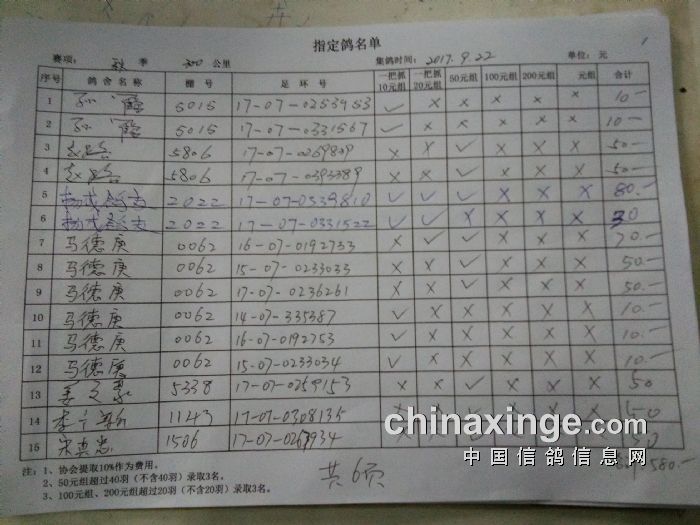 指定鸽名单
赛项： 秋 季 300 公里 集鸽时间：2017.9.22 单位：元
序号 鸽舍名称 棚号 足环号 一把抓10元组 一把抓20元组 50元组 100元组 200元组 元组 合计
1 5015 17-07-0253953 ✓ × × × × × 10.-
2 5015 17-07-0331567 ✓ × × × × × 10.-
3 5806 17-07-0269809 × × ✓ × × × 50.-
4 5806 17-07-0393389 × × ✓ × × × 50.-
5 2022 17-07-0539810 ✓ ✓ ✓ × × × 80.-
6 2022 17-07-0331522 ✓ ✓ × × × × 30
7 马德庚 0062 16-07-0192733 × ✓ ✓ × × × 70.-
8 马德庚 0062 15-07-0233033 × × ✓ × × × 50.-
9 马德庚 0062 17-07-0236261 × × ✓ × × × 50.-
10 马德庚 0062 14-07-335387 ✓ × × × × × 10.-
11 马德庚 0062 16-07-0192753 ✓ × × × × × 10.-
12 马德庚 0062 15-07-0233034 ✓ × × × × × 10.-
13 姜文 5338 17-07-0259153 × × ✓ × × × 50
14 李 1143 17-07-0308135 50
15 宋 1506 17-07-0267934 50
chinaxinge.com
中国信鸽信息网
580.-
注：1、协会提取10%作为费用。
2、50元组超过40羽（不含40羽）录取3名。
3、100元组、200元组超过20羽（不含20羽）录取3名。
共6页